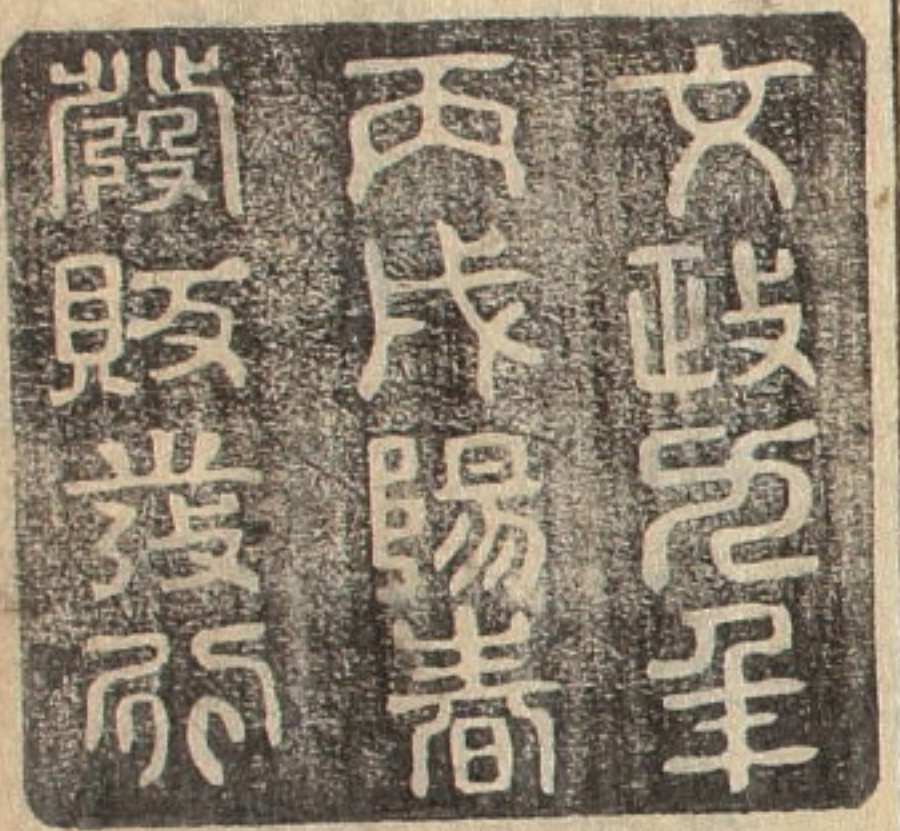 文政九年
丙戌陽春
發販發行